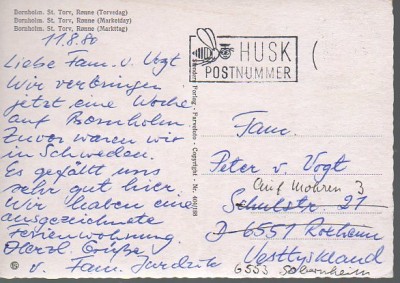 Bornholm. St. Torv, Rønne (Torvedag)
Bornholm. St. Torv, Rønne (Marketday)
Bornholm. St. Torv, Rønne (Markttag)
11.8.80
Liebe Fam. v. Vogt
Wir verbringen
jetzt eine Woche
auf Bornholm
Zuvor waren wir
in Schweden.
Es gefällt uns
sehr gut hier.
Wir haben eine
ausgezeichnete
Ferienwohnung
Herzl. Grüße
v. Fam.
HUSK
POSTNUMMER
Forlag - Farvefoto - Copyright - Nr.
Fam.
Peter v. Vogt
Auf Mohren 3
Schulstr. 21
D 6551 Roxheim
Vesttyskland
6553 Sobernheim